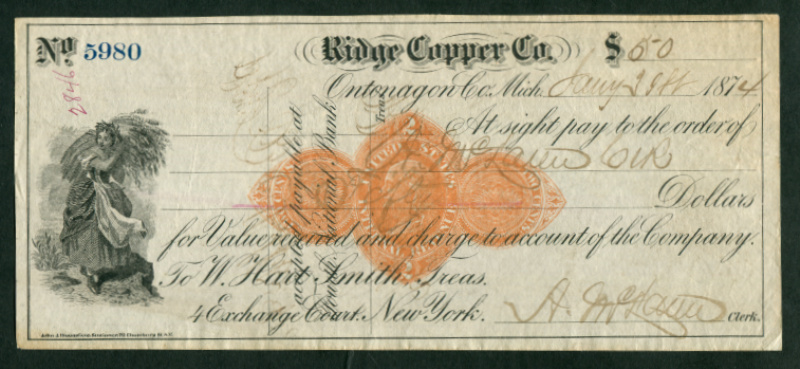 No. 5980 Ridge Copper Co. $ 50
2846
Ontonagon Co. Mich. Jany 1874
At sight pay to the order of
McLaren Clk
Dollars
for Value received and charge to account of the Company.
To W. Hart Smith, Treas.
4 Exchange Court. New York. A. McLaren Clerk.
payable at
National Bank
Treas.